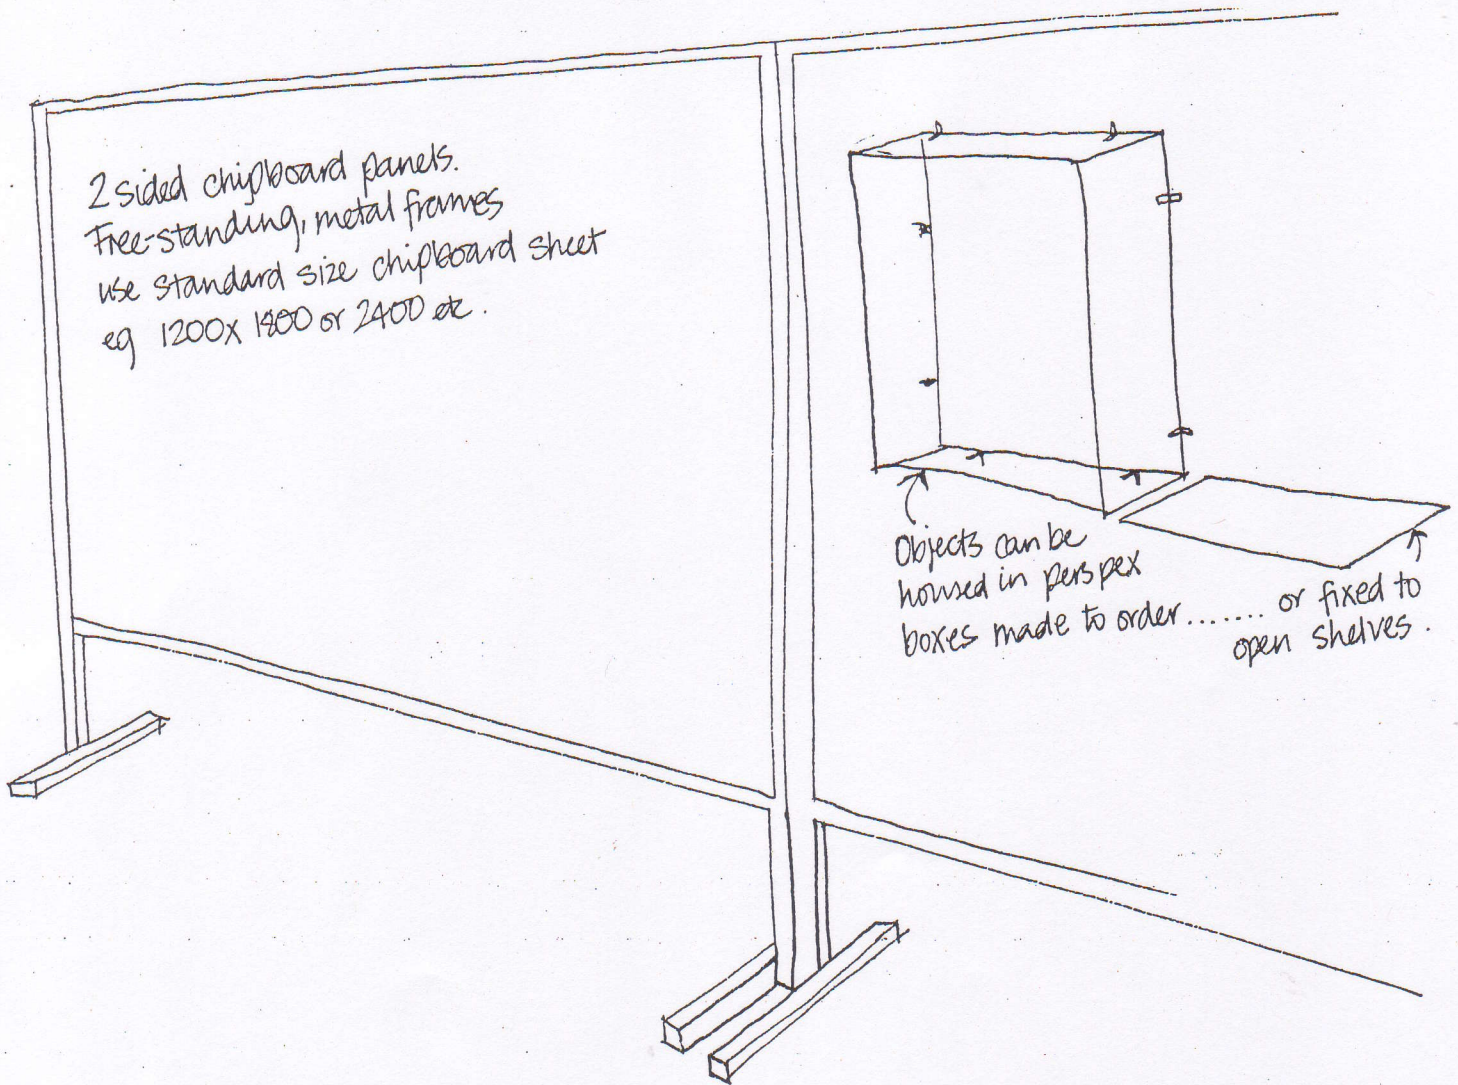 2 sided chipboard panels.
Free-standing, metal frames
use standard size chipboard sheet
eg 1200x 1800 or 2400 etc.
Objects can be
housed in perspex
boxes made to order ....... or fixed to
open shelves.